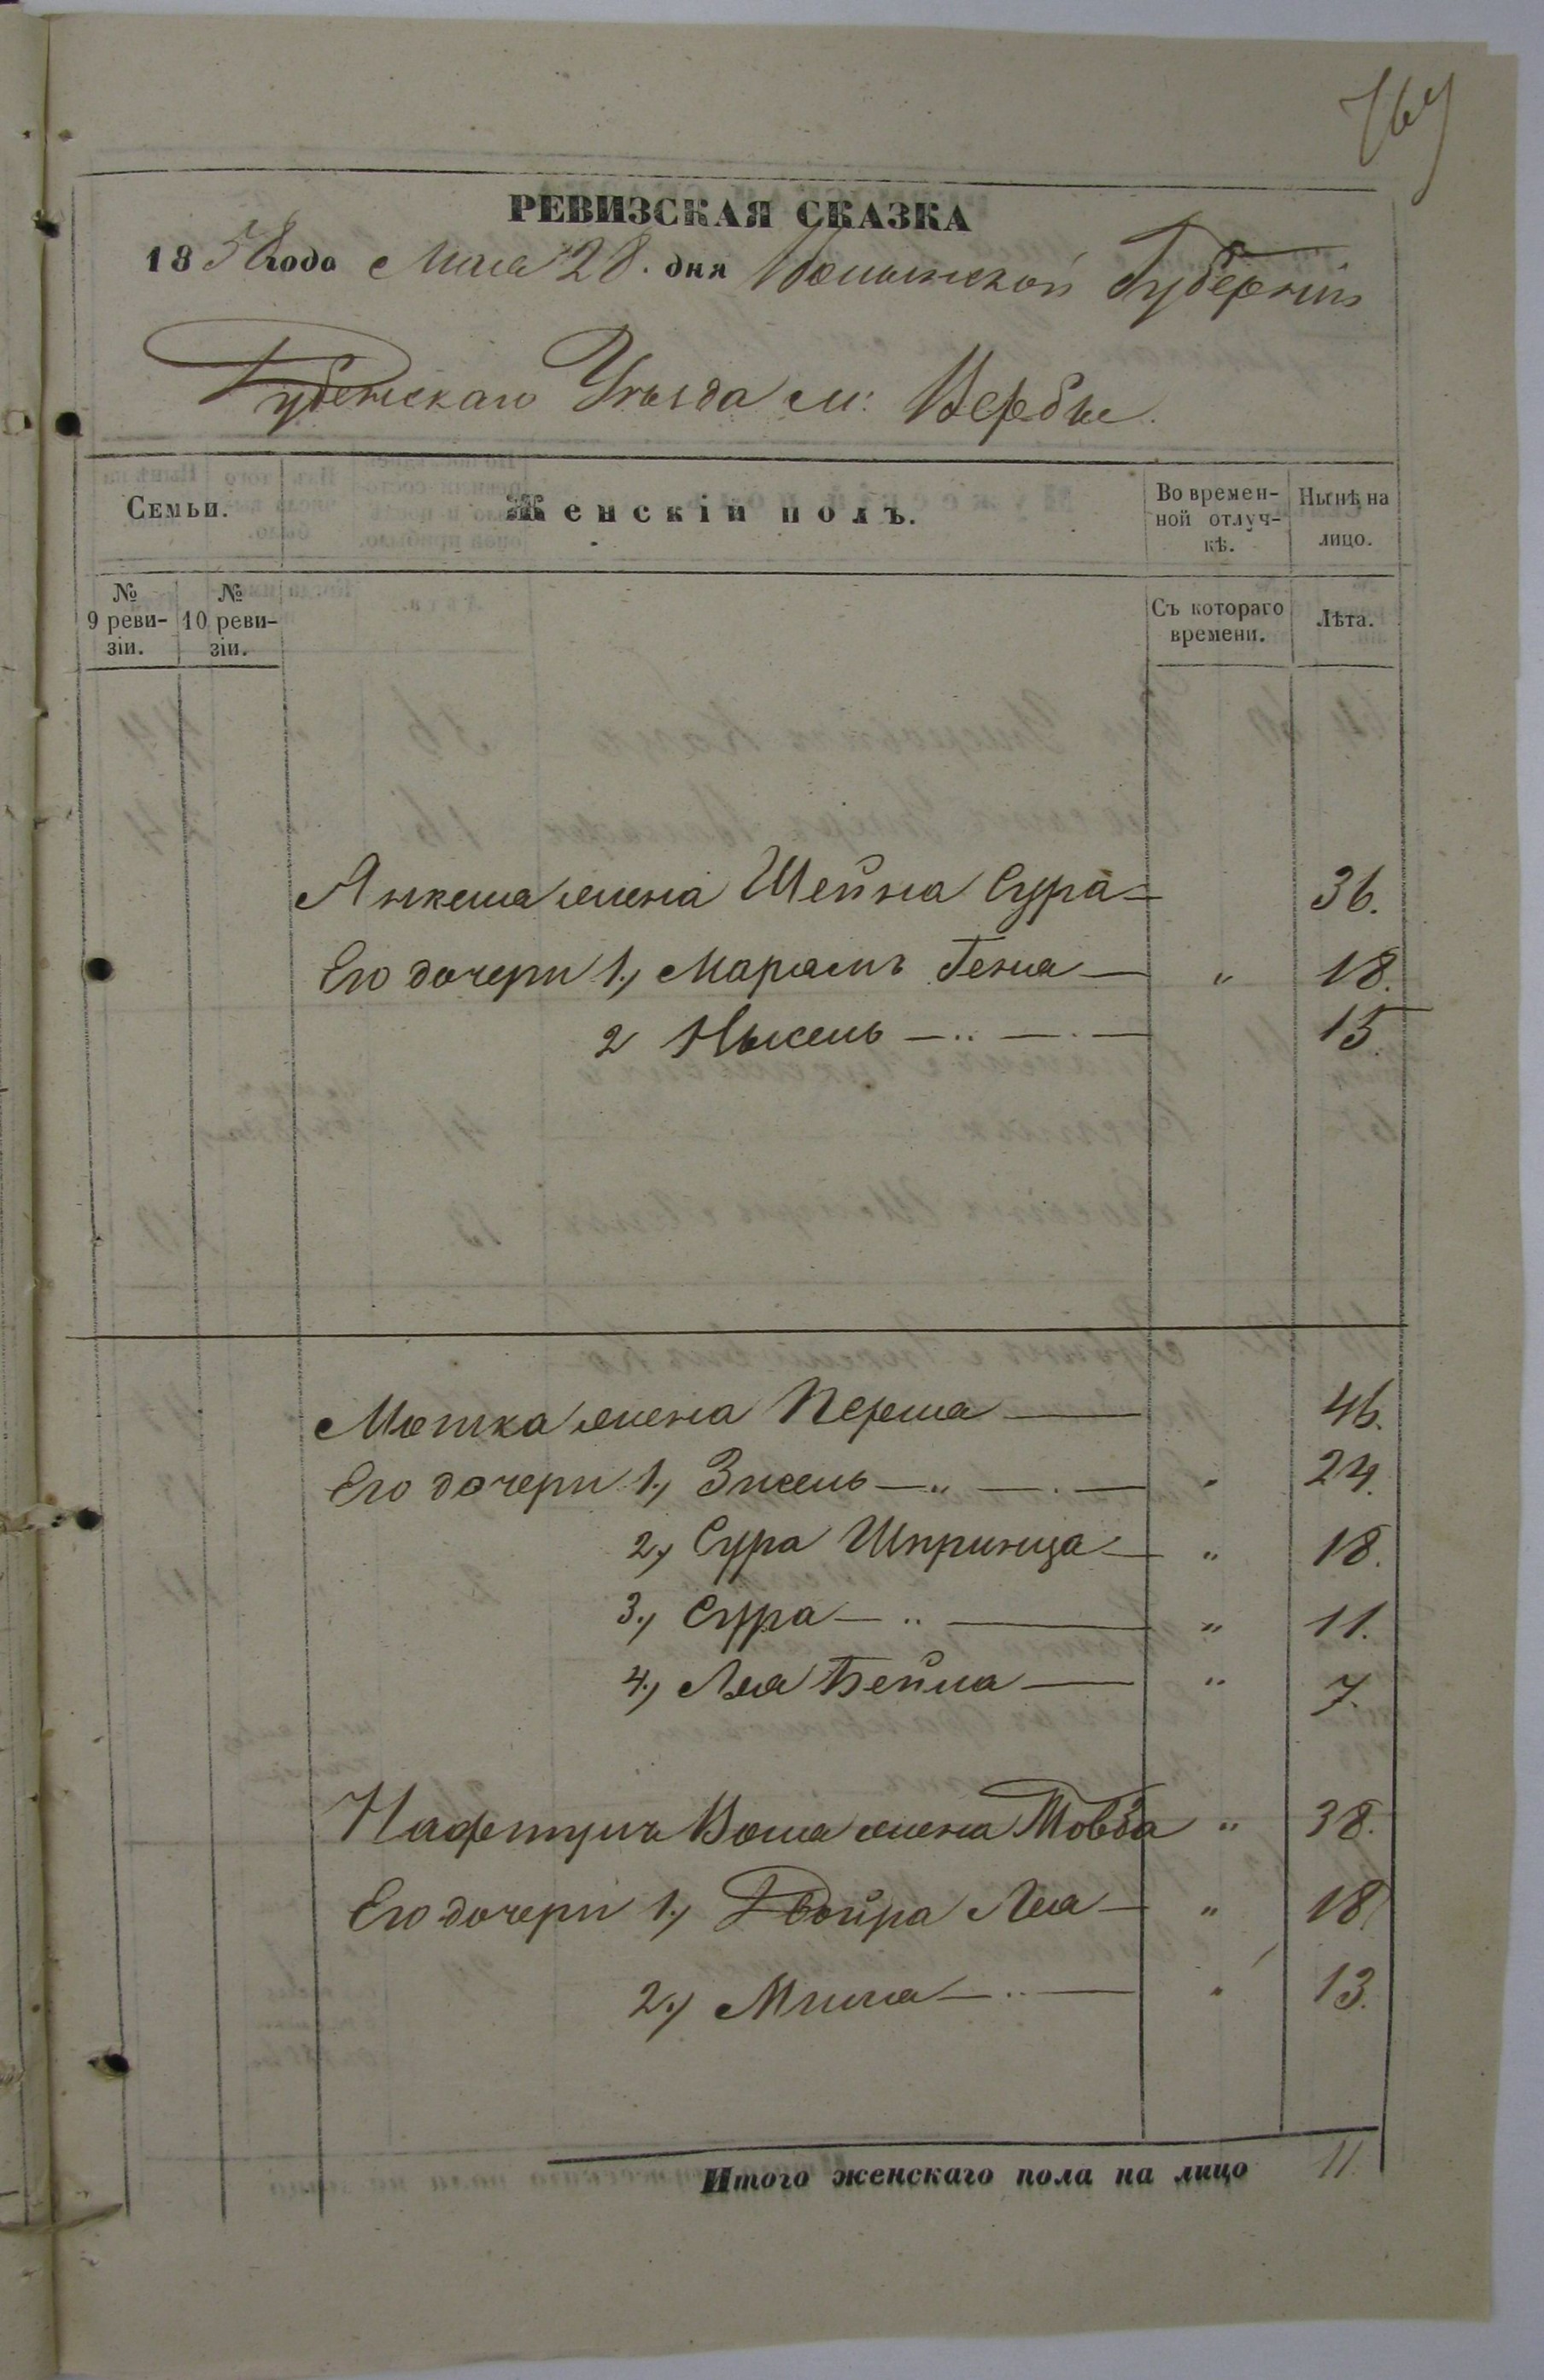 769
РЕВИЗСКАЯ СКАЗКА
1858 года Мая 28. дня Волынской Губерніи
Дубенскаго Уѣзда м: Вербы.
Семьи.
Женскій полъ.
Во времен-
ной отлуч-
кѣ.
Нынѣ на
лицо.
№
9 реви-
зіи.
№
10 реви-
зіи.
Съ котораго
времени.
Лѣта.
Янкеля жена Шейна Сура — 36.
Его дочери 1., Марямъ Геня — " 18.
2 Нысель — .. — . — 15.
Мотка жена Перля — 46.
Его дочери 1., Зисель — " — . — " 24.
2., Сура Шпринца — " 18.
3., Сура — .. — " 11.
4., Лея Бейла — " 7.
Нафтулы Вола жена Товба " 38.
Его дочери 1., Двойра Лея — " 18
2., Миля — .. — " 13.
Итого женскаго пола на лицо 11